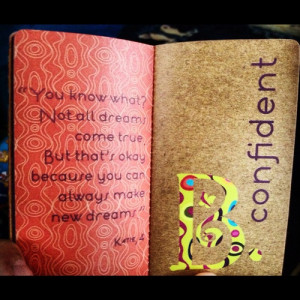 "You know what?
Not all dreams
come true.
But that's okay
because you can
always make
new dreams."
Be
confident